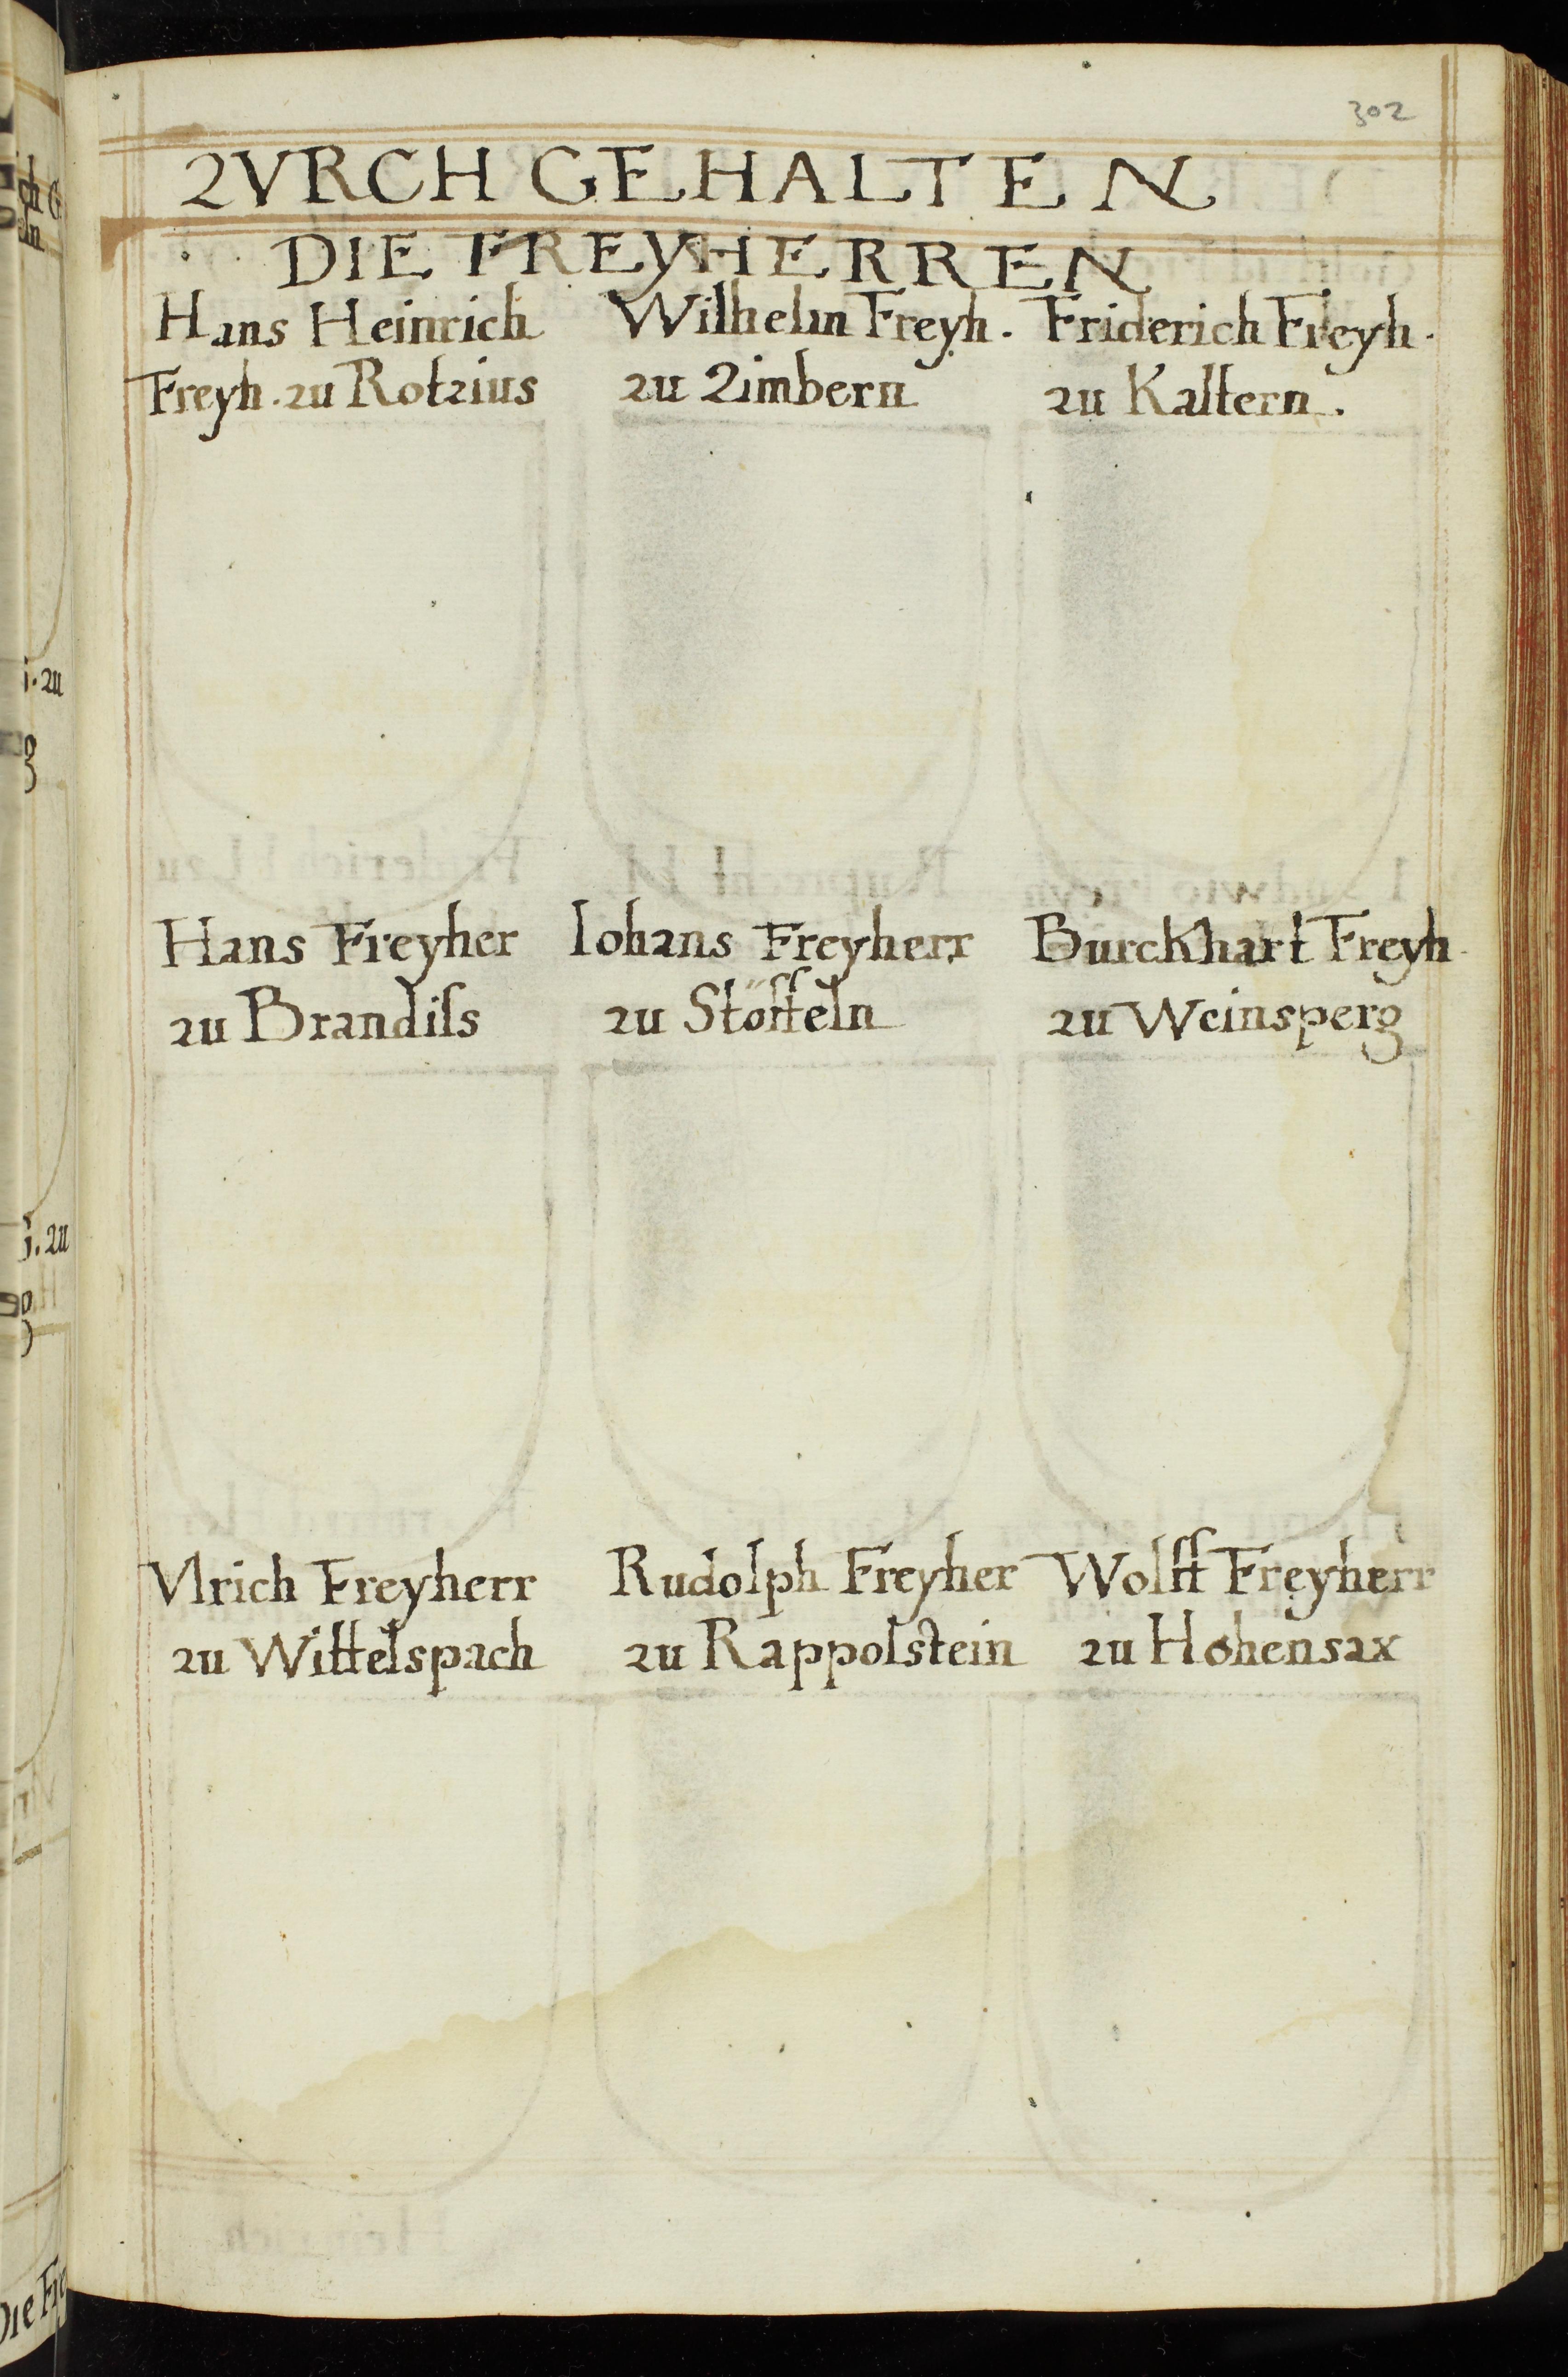 302
ZVRCH GEHALTEN
DIE FREYHERREN
Hans Heinrich
Freyh. zu Rotzius
Wilhelm Freyh.
zu Zimbern
Friderich Freyh.
zu Kaltern.
Hans Freyher
zu Brandiſs
Iohans Freyherr
zu Stöffeln
Burckhart Freyh
zu Weinsperg
Vlrich Freyherr
zu Wittelspach
Rudolph Freyher
zu Rappolstein
Wolff Freyherr
zu Hohensax